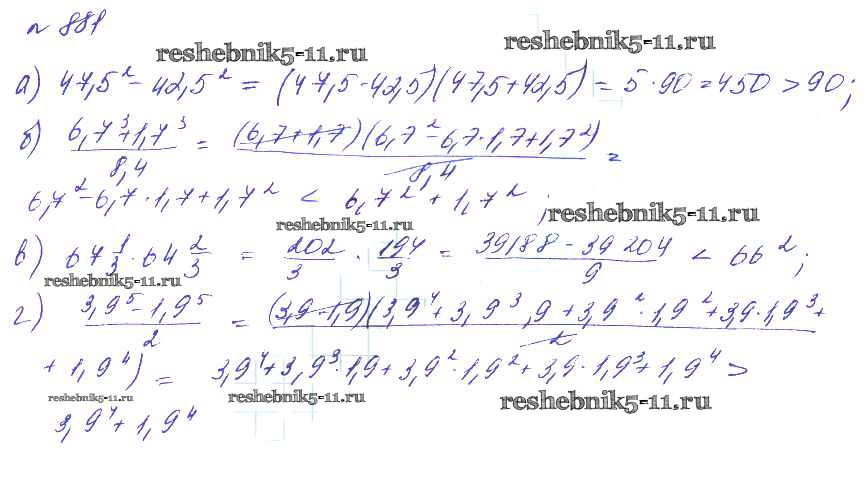 № 881
reshebnik5-11.ru reshebnik5-11.ru
а) 47,5² - 42,5² = (47,5 - 42,5)(47,5 + 42,5) = 5 · 90 = 450 > 90;
б) (6,7³ + 1,7³)/8,4 = (6,7 + 1,7)(6,7² - 6,7 · 1,7 + 1,7²)/8,4 =
6,7² - 6,7 · 1,7 + 1,7² < 6,7² + 1,7²;
reshebnik5-11.ru reshebnik5-11.ru
в) 67 1/3 · 64 2/3 = 202/3 · 194/3 = (39188 - 39204)/9 < 66²;
reshebnik5-11.ru
г) (3,9⁵ - 1,9⁵)/2 = (3,9 · 1,9)(3,9⁴ + 3,9³ ,9 + 3,9² · 1,9² + 3,9 · 1,9³ +
+ 1,9⁴)/2 = 3,9⁴ + 3,9³ · 1,9 + 3,9² · 1,9² + 3,9 · 1,9³ + 1,9⁴ >
reshebnik5-11.ru reshebnik5-11.ru reshebnik5-11.ru
3,9⁴ + 1,9⁴